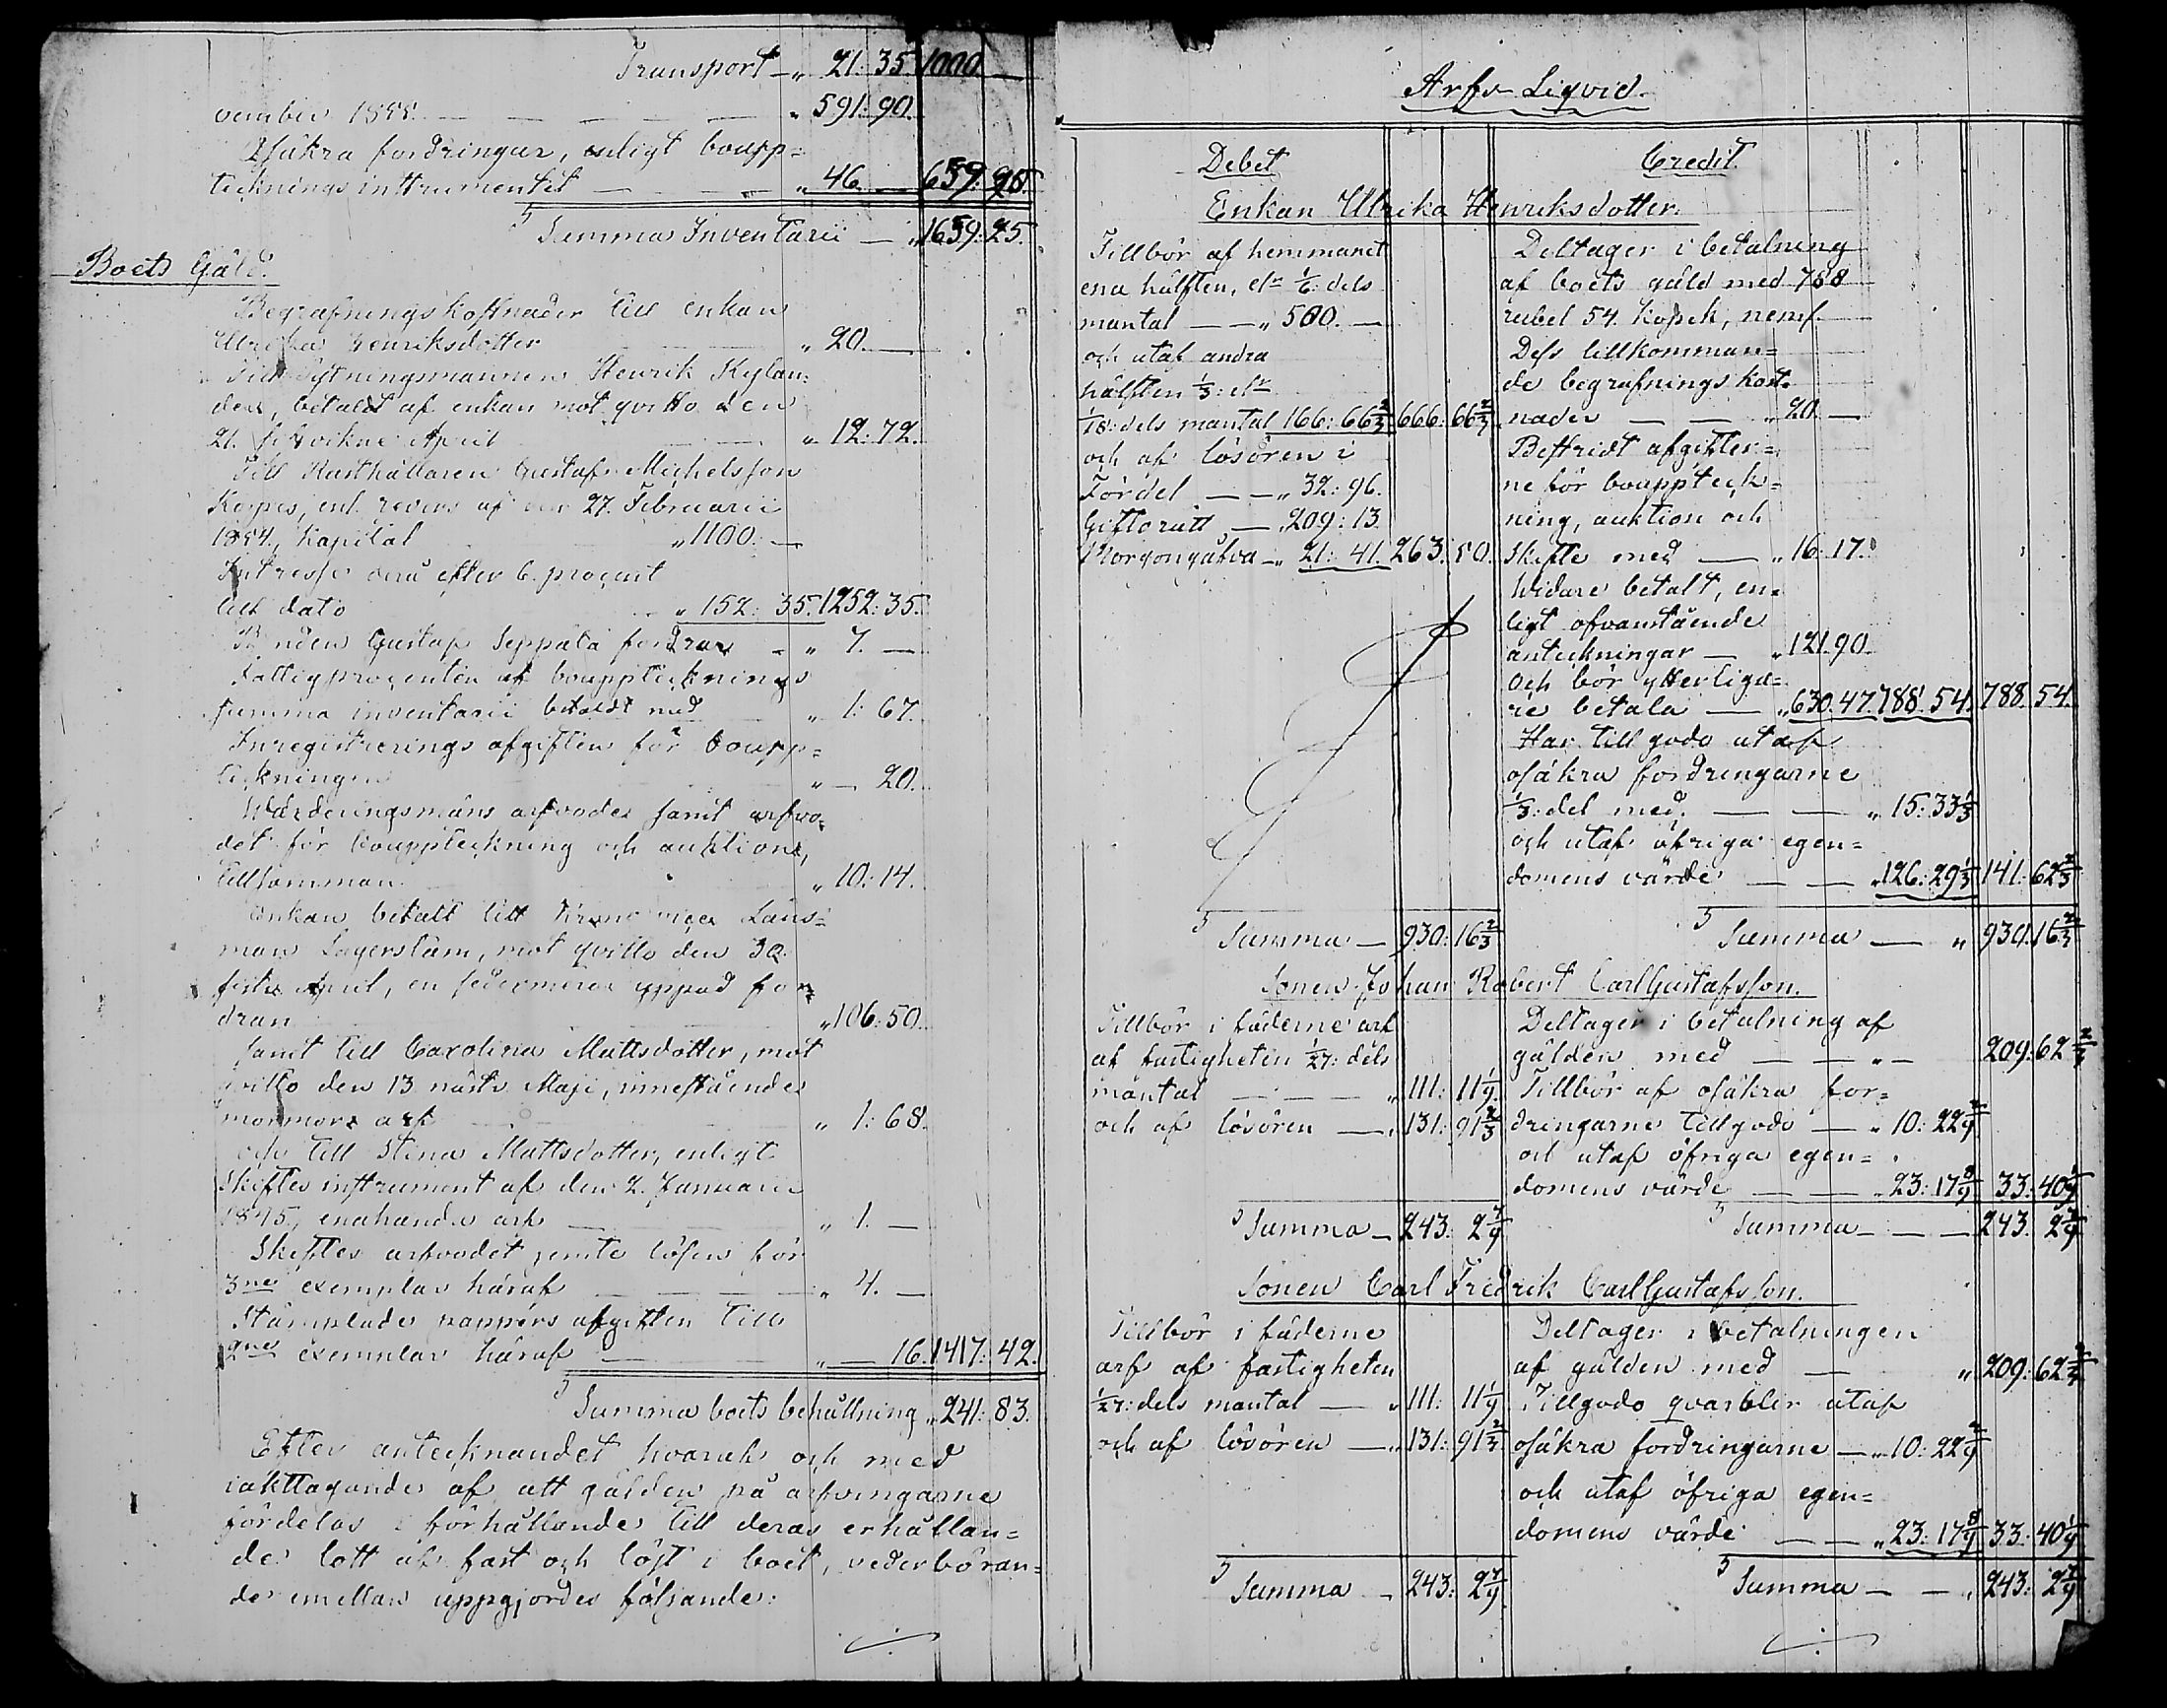 Transport — „ 21: 35. 1000 —
vember 1855. — — — — — „ 591: 90.
Osäkra fordringar, enligt boupp=
tecknings instrumentet — — — „ 46. — 659: 25.
Summa Inventarii — „ 1659: 25.
Boets Gäld.
Begrafningskostnader till enkan
Ulrika Henriksdotter „ 20. —
Till Sytningsmannen Henrik Kylan=
der, betaldt af enkan mot qvitto den
21. sistvikne April — „ 12: 72.
Till Rusthållaren Gustaf Michelsson
Korpis, enl. revers af den 27. Februarii
1854, Kapital „ 1100: —
Intresse derå efter 6. procent
till dato „ 152: 35. 1252: 35.
Bonden Gustaf Seppälä fordrar — „ 7. —
Fattigprocenten af bouppteckningens
summa inventarii betaldt med „ 1: 67.
Inregistrerings afgiften för boupp=
teckningen „ — 20.
Värderingsmäns arfvode samt arfvo=
det för bouppteckning och auktion,
tillsamman „ 10: 14.
Enkan betalt till Läns=
man Lagerstam, mot qvitto den 30.
sistl. April, en sedermera uppgd for=
dran „ 106: 50.
samt till Carolina Mattsdotter, mot
qvitto den 13 nästl. Maji, innestående
mormors arf „ 1: 68.
och till Stina Mattsdotter, enligt
Skiftes instrument af den 2. Januarii
1845, enahanda arf — „ 1. —
Skiftes arfvodet jemte lösen för
3ne exemplar häraf — — — „ 4. —
Stämplade pappers afgiften till
2ne exemplar häraf — „ — 16. 1417: 42.
Summa boets behållning „ 241: 83.
Efter antecknandet hvaraf och med
iakttagande af att gälden på arfvingarne
fördelas i förhållande till deras erhållan=
de lott af fast och löst i boet, vederböran=
de emellan uppgjordes följande:
Arfs Liqvid.
Debet Credit.
Enkan Ulrika Henriksdotter.
Tillbör af hemmanet
ena hälften, elr 1/6: dels
mantal — — „ 500. —
och utaf andra
hälften 1/3: elr
1/18: dels mantal 166: 66 2/3 666: 66 2/3
och af lösören i
Fördel — — „ 32: 96.
Giftorätt — „ 209: 13.
Morgongåfva — „ 21: 41. 263: 50.
Summa — 930: 16 2/3
Deltager i betalning
af boets gäld med 788
rubel 54. kopek, neml.
Dess tillkomman=
de begrafnings kost=
nader — — „ 20 —
Bestridt afgifter=
ne för bouppteck=
ning, auktion och
Skifte med — „ 16: 17.
Widare betalt, en=
ligt ofvanstående
anteckningar — „ 121: 90.
Och bör ytterliga=
re betala — „ 630: 47. 788: 54. 788: 54.
Har till godo utaf
osäkra fordringarne
1/3: del med — — „ 15: 33 1/3
och utaf öfriga egen=
domens värde — — „ 126: 29 1/3 141: 62 2/3
Summa — „ 930: 16 2/3
Sonen Johan Robert CarlGustafsson.
Tillbör i fäderne arf
af fastigheten 1/27: dels
mantal — — — „ 111: 11 1/9
och af lösören — „ 131: 91 2/3
Summa — 243: 2 7/9
Deltager i betalning af
gälden med — — „ — 209: 62 2/3
Tillbör af osäkra for=
dringarne tillgodo — „ 10: 22 2/9
och utaf öfriga egen=
domens värde — — „ 23: 17 8/9 33: 40 1/9
Summa — — — 243: 2 7/9
Sonen Carl Fredrik CarlGustafsson.
Tillbör i fäderne
arf af fastigheten
1/27: dels mantal — „ 111: 11 1/9
och af lösören — „ 131: 91 2/3
Summa — 243: 2 7/9
Deltager i betalningen
af gälden med — „ 209: 62 2/3
Tillgodo qvarblir utaf
osäkra fordringarne — „ 10: 22 2/9
och utaf öfriga egen=
domens värde — — „ 23: 17 8/9 33: 40 1/9
Summa — — „ 243: 2 7/9